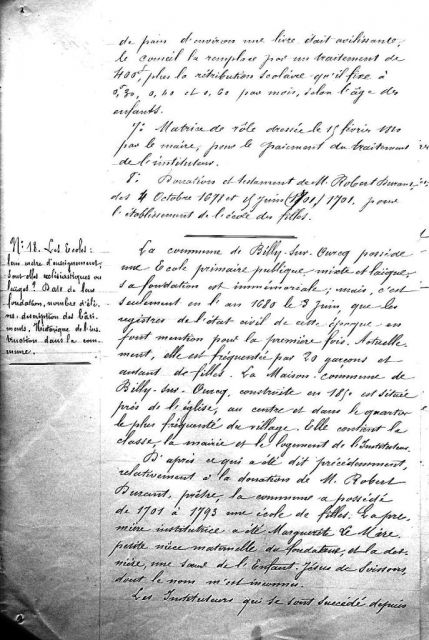 de pain d'environ une livre était avilissante,
le conseil la remplace par un traitement de
400f, plus la rétribution scolaire qu'il fixe à
0f,30, 0,40 et 0,60 par mois, selon l'âge des
enfants.
7º: Matrice de rôle dressée le 15 février 1810
par le maire, pour le paiement du traitement
de l'instituteur.
8º: Donations et testament de M. Robert Durant,
des 4 Octobre 1671 et 15 juin (1701) 1701, pour
l'établissement de l'école des filles.
Nº 18. Les Ecoles:
leur ordre d'enseignement,
sont-elles ecclésiastiques ou
laïques? Date de leur
fondation, nombre d'élè-
ves, description des bâti-
ments, Historique de l'ins-
truction dans la com-
mune.
La commune de Billy-sur-Ourcq possède
une Ecole primaire publique, mixte et laïque,
sa fondation est immémoriale; mais, c'est
seulement en l'an 1680 le 3 Juin, que les
registres de l'état civil de cette époque en
font mention pour la première fois. Actuelle
ment, elle est fréquentée par 20 garçons et
autant de filles. La Maison-commune de
Billy-sur-Ourcq, construite en est située
près de l'église, au centre et dans le quartier
le plus fréquenté du village. Elle contient la
classe, la mairie et le logement de l'Instituteur.
D'après ce qui a été dit précédemment,
relativement à la donation de M. Robert
Durant, prêtre, la commune a possédé
de 1701 à 1793 une école de filles. La pre-
mière institutrice a été Marguerite Le Mère,
petite nièce maternelle du fondateur, et la der-
nière, une sœur de l'Enfant-Jésus de Soissons,
dont le nom m'est inconnu.
Les Instituteurs qui se sont succédé depuis